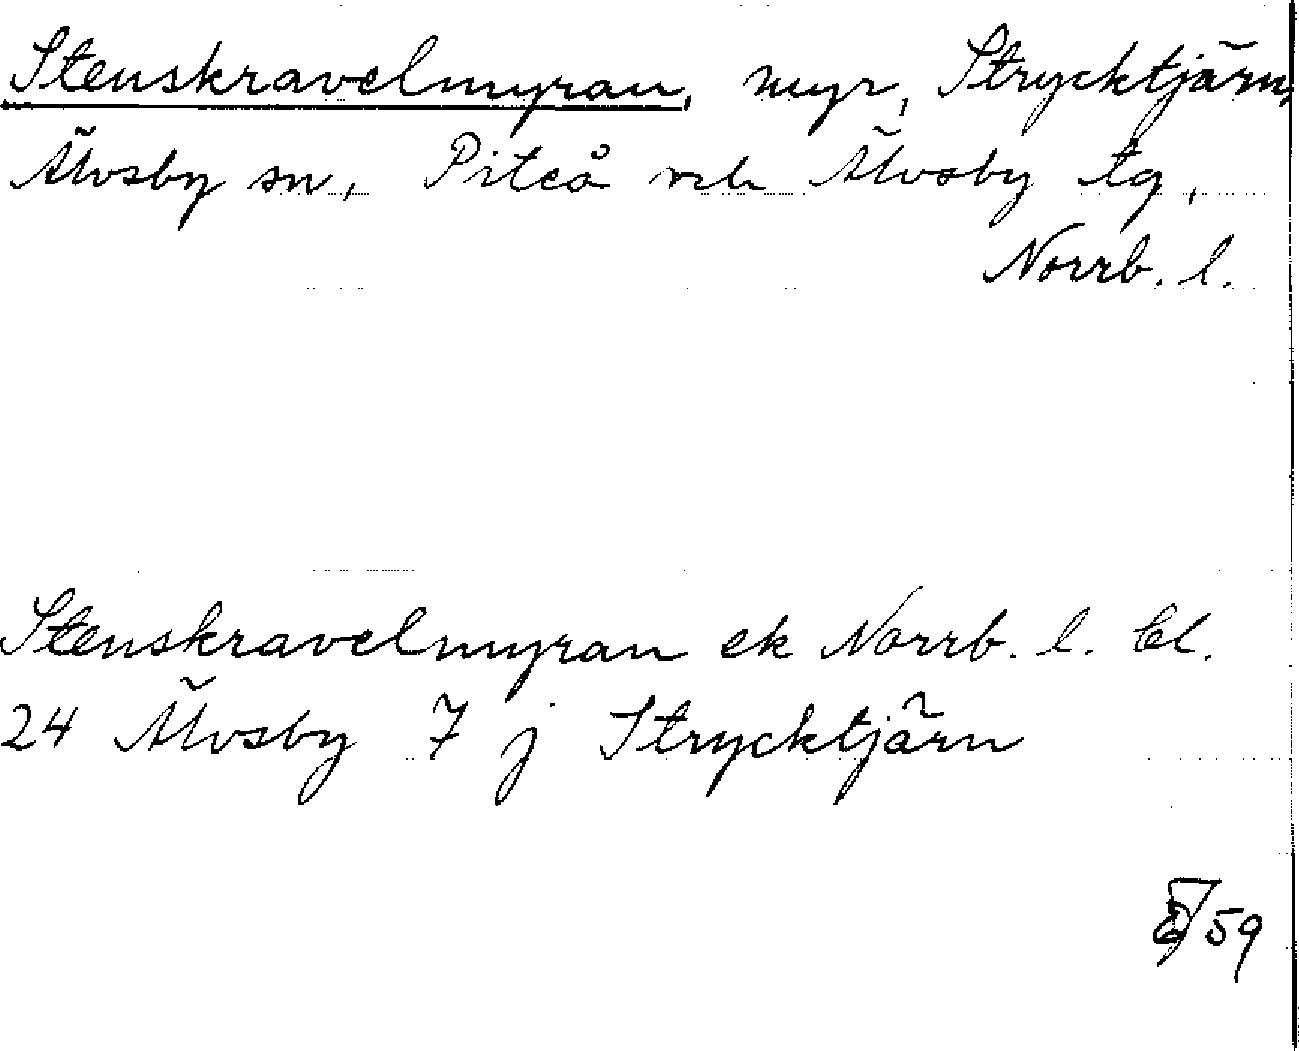 Stenskravelmyran, myr, Strycktjärn,
Älvsby sn, Piteå och Älvsby tg,
Norrb. l.
Stenskravelmyran ek Norrb. l. bl.
24 Älvsby 7 j Strycktjärn
59